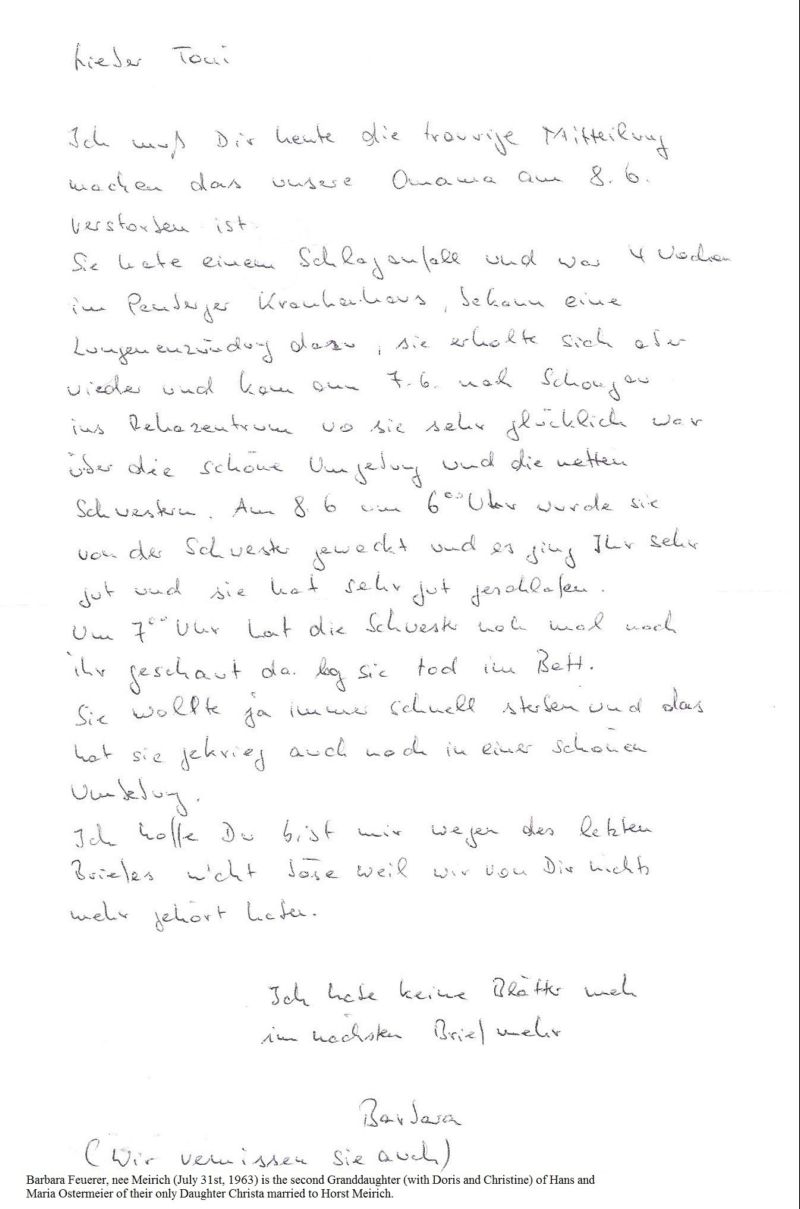 Lieber Toni
Ich muß Dir heute die traurige Mitteilung
machen das unsere Omama am 8.6.
verstorben ist.
Sie hate einem Schlaganfall und war 4 Wochen
im Penzberger Krankenhaus, bekam eine
Lungenenzündug dazu, sie erholte sich aber
wieder und kam am 7.6. nach Schongau
ins Rehazentrum wo sie sehr glücklich war
über die schöne Umgebung und die netten
Schwestern. Am 8.6 um 6°° Uhr wurde sie
von der Schwester geweckt und es ging Ihr sehr
gut und sie hat sehr gut geschlafen.
Um 7°° Uhr hat die Schwester noch mal nach
ihr geschaut da lag sie tod im Bett.
Sie wollte ja immer schnell sterben und das
hat sie gekrieg auch noch in einer schönen
Umgebung.
Ich hoffe Du bist mir wegen des letzten
Briefes nicht böse weil wir von Dir nichts
mehr gehört haben.
Ich habe keine Blätter mehr
im nächsten Brief mehr
Barbara
(Wir vermissen sie auch)
Barbara Feuerer, nee Meirich (July 31st, 1963) is the second Granddaughter (with Doris and Christine) of Hans and
Maria Ostermeier of their only Daughter Christa married to Horst Meirich.